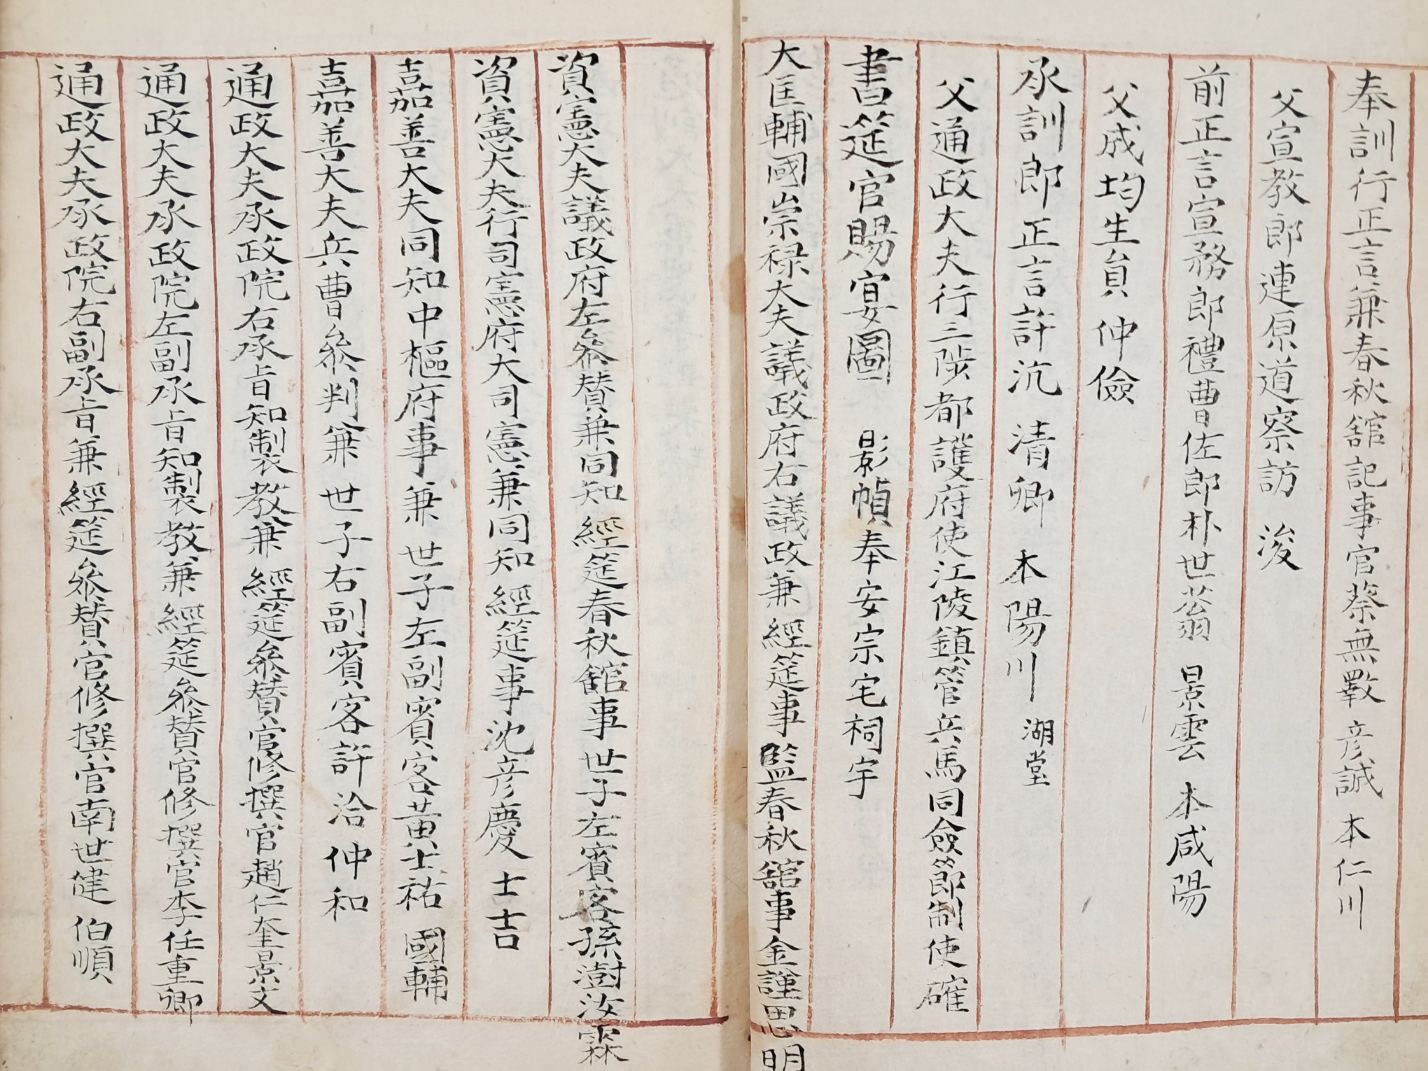 奉訓行正言兼春秋舘記事官蔡無斁 彦誠 本仁川
父宣教郎連原道察訪 浚
前正言宣務郎禮曹佐郎朴世蓊 景雲 本咸陽
父成均生員 仲儉
承訓郎正言許沆 清卿 本陽川 湖堂
父通政大夫行三陟都護府使江陵鎮管兵馬同僉節制使確
書筵官賜宴圖 影幀奉安宗宅祠宇
大匡輔國崇禄大夫議政府右議政兼 經筵事監春秋舘事金謹思明
資憲大夫議政府左叅賛兼同知 經筵春秋舘事 世子左賓客孫澍汝霖
資憲大夫行司憲府大司憲兼同知 經筵事沈彦慶 士吉
嘉善大夫同知中樞府事兼 世子左副賓客黄士祐 國輔
嘉善大夫兵曹叅判兼 世子右副賓客許洽 仲和
通政大夫承政院右承旨知製教兼 經筵叅賛官修撰官趙仁奎景文
通政大夫承政院左副承旨知製教兼 經筵叅賛官修撰官李任重卿
通政大夫承政院右副承旨兼 經筵叅賛官修撰官南世健 伯順